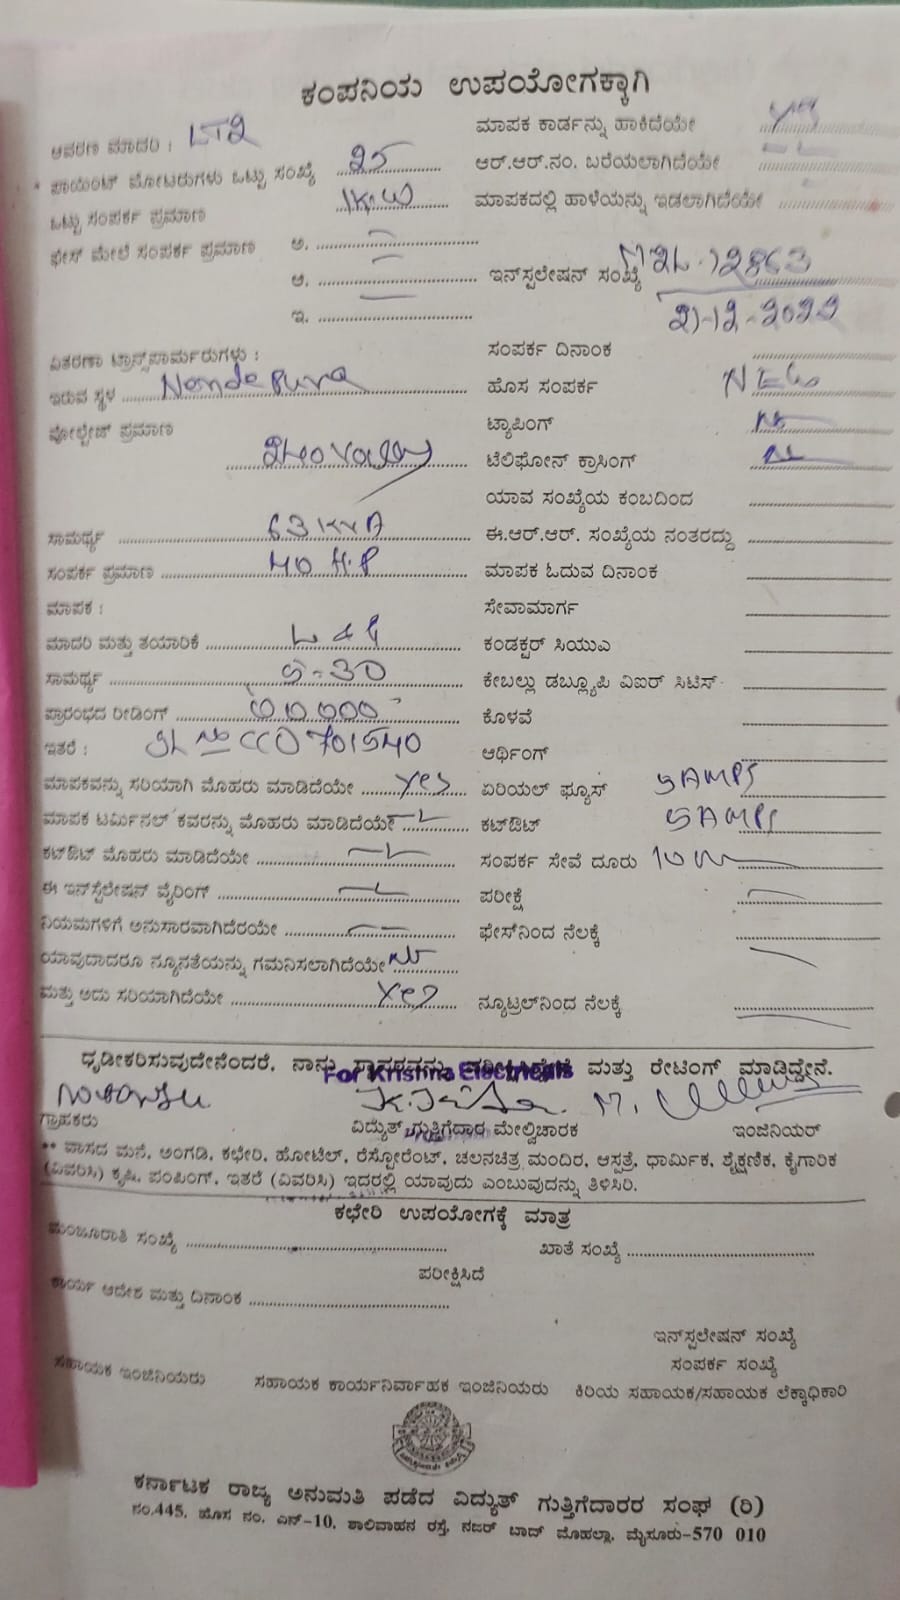 ಕಂಪನಿಯ ಉಪಯೋಗಕ್ಕಾಗಿ
ಆವರಣ ಮಾದರಿ : LT2 ಮಾಪಕ ಕಾರ್ಡನ್ನು ಹಾಕಿದೆಯೇ
ಪಾಯಿಂಟ್ ಮೋಟರುಗಳು ಒಟ್ಟು ಸಂಖ್ಯೆ 25 ಆರ್.ಆರ್.ನಂ. ಬರೆಯಲಾಗಿದೆಯೇ
ಒಟ್ಟು ಸಂಪರ್ಕ ಪ್ರಮಾಣ 1K.W ಮಾಪಕದಲ್ಲಿ ಹಾಳೆಯನ್ನು ಇಡಲಾಗಿದೆಯೇ
ಫೇಸ್ ಮೇಲೆ ಸಂಪರ್ಕ ಪ್ರಮಾಣ ಅ.
ಆ. ಇನ್‌ಸ್ಪಲೇಷನ್ ಸಂಖ್ಯೆ M2L-12863
ಇ. 21-12-2022
ವಿತರಣಾ ಟ್ರಾನ್ಸ್‌ಫಾರ್ಮರುಗಳು : ಸಂಪರ್ಕ ದಿನಾಂಕ
ಇರುವ ಸ್ಥಳ ಹೊಸ ಸಂಪರ್ಕ
ವೋಲ್ಟೇಜ್ ಪ್ರಮಾಣ ಟ್ಯಾಪಿಂಗ್
ಟೆಲಿಫೋನ್ ಕ್ರಾಸಿಂಗ್
ಯಾವ ಸಂಖ್ಯೆಯ ಕಂಬದಿಂದ
ಸಾಮರ್ಥ್ಯ 63 KVA ಈ.ಆರ್.ಆರ್. ಸಂಖ್ಯೆಯ ನಂತರದ್ದು
ಸಂಪರ್ಕ ಪ್ರಮಾಣ 40 H.P ಮಾಪಕ ಓದುವ ದಿನಾಂಕ
ಮಾಪಕ : ಸೇವಾಮಾರ್ಗ
ಮಾದರಿ ಮತ್ತು ತಯಾರಿಕೆ ಕಂಡಕ್ಟರ್ ಸಿಯುಎ
ಸಾಮರ್ಥ್ಯ 5-30 ಕೇಬಲ್ಲು ಡಬ್ಲ್ಯೂಪಿ ವಿಐರ್ ಸಿಟಿಸ್
ಪ್ರಾರಂಭದ ರೀಡಿಂಗ್ ಕೊಳವೆ
ಇತರೆ : SL No CCO 701540 ಆರ್ಥಿಂಗ್
ಮಾಪಕವನ್ನು ಸರಿಯಾಗಿ ಮೊಹರು ಮಾಡಿದೆಯೇ Yes ಏರಿಯಲ್ ಫ್ಯೂಸ್ 5AMPS
ಮಾಪಕ ಟರ್ಮಿನಲ್ ಕವರನ್ನು ಮೊಹರು ಮಾಡಿದೆಯೇ ಕಟ್‌ಔಟ್ 5AMPS
ಕಟ್‌ಔಟ್ ಮೊಹರು ಮಾಡಿದೆಯೇ ಸಂಪರ್ಕ ಸೇವೆ ದೂರು 10
ಈ ಇನ್‌ಸ್ಪೆಲೇಷನ್ ವೈರಿಂಗ್ ಪರೀಕ್ಷೆ
ನಿಯಮಗಳಿಗೆ ಅನುಸಾರವಾಗಿದೆರಯೇ ಫೇಸ್‌ನಿಂದ ನೆಲಕ್ಕೆ
ಯಾವುದಾದರೂ ನ್ಯೂನತೆಯನ್ನು ಗಮನಿಸಲಾಗಿದೆಯೇ
ಮತ್ತು ಅದು ಸರಿಯಾಗಿದೆಯೇ Yes ನ್ಯೂಟ್ರಲ್‌ನಿಂದ ನೆಲಕ್ಕೆ
ಧೃಡೀಕರಿಸುವುದೇನೆಂದರೆ, ನಾನು ಮತ್ತು ರೇಟಿಂಗ್ ಮಾಡಿದ್ದೇನೆ.
For Krishna Electricals
ಗ್ರಾಹಕರು ವಿದ್ಯುತ್ ಗುತ್ತಿಗೆದಾರ ಮೇಲ್ವಿಚಾರಕ ಇಂಜಿನಿಯರ್
** ವಾಸದ ಮನೆ, ಅಂಗಡಿ, ಕಛೇರಿ, ಹೋಟೆಲ್, ರೆಸ್ಟೋರೆಂಟ್, ಚಲನಚಿತ್ರ ಮಂದಿರ, ಆಸ್ಪತ್ರೆ, ಧಾರ್ಮಿಕ, ಶೈಕ್ಷಣಿಕ, ಕೈಗಾರಿಕ
(ವಿವರಿಸಿ) ಕೃಷಿ, ಪಂಪಿಂಗ್, ಇತರೆ (ವಿವರಿಸಿ) ಇದರಲ್ಲಿ ಯಾವುದು ಎಂಬುವುದನ್ನು ತಿಳಿಸಿರಿ.
ಕಛೇರಿ ಉಪಯೋಗಕ್ಕೆ ಮಾತ್ರ
ಮಂಜೂರಾತಿ ಸಂಖ್ಯೆ ಖಾತೆ ಸಂಖ್ಯೆ
ಪರೀಕ್ಷಿಸಿದೆ
ಕಾರ್ಯ ಆದೇಶ ಮತ್ತು ದಿನಾಂಕ
ಇನ್‌ಸ್ಪಲೇಷನ್ ಸಂಖ್ಯೆ
ಸಂಪರ್ಕ ಸಂಖ್ಯೆ
ಸಹಾಯಕ ಇಂಜಿನಿಯರು ಸಹಾಯಕ ಕಾರ್ಯನಿರ್ವಾಹಕ ಇಂಜಿನಿಯರು ಕಿರಿಯ ಸಹಾಯಕ/ಸಹಾಯಕ ಲೆಕ್ಕಾಧಿಕಾರಿ
ಕರ್ನಾಟಕ ರಾಜ್ಯ ಅನುಮತಿ ಪಡೆದ ವಿದ್ಯುತ್ ಗುತ್ತಿಗೆದಾರರ ಸಂಘ (ರಿ)
ನಂ.445, ಹೊಸ ನಂ. ಎನ್-10, ಶಾಲಿವಾಹನ ರಸ್ತೆ, ನಜರ್ ಬಾದ್ ಮೊಹಲ್ಲಾ, ಮೈಸೂರು-570 010